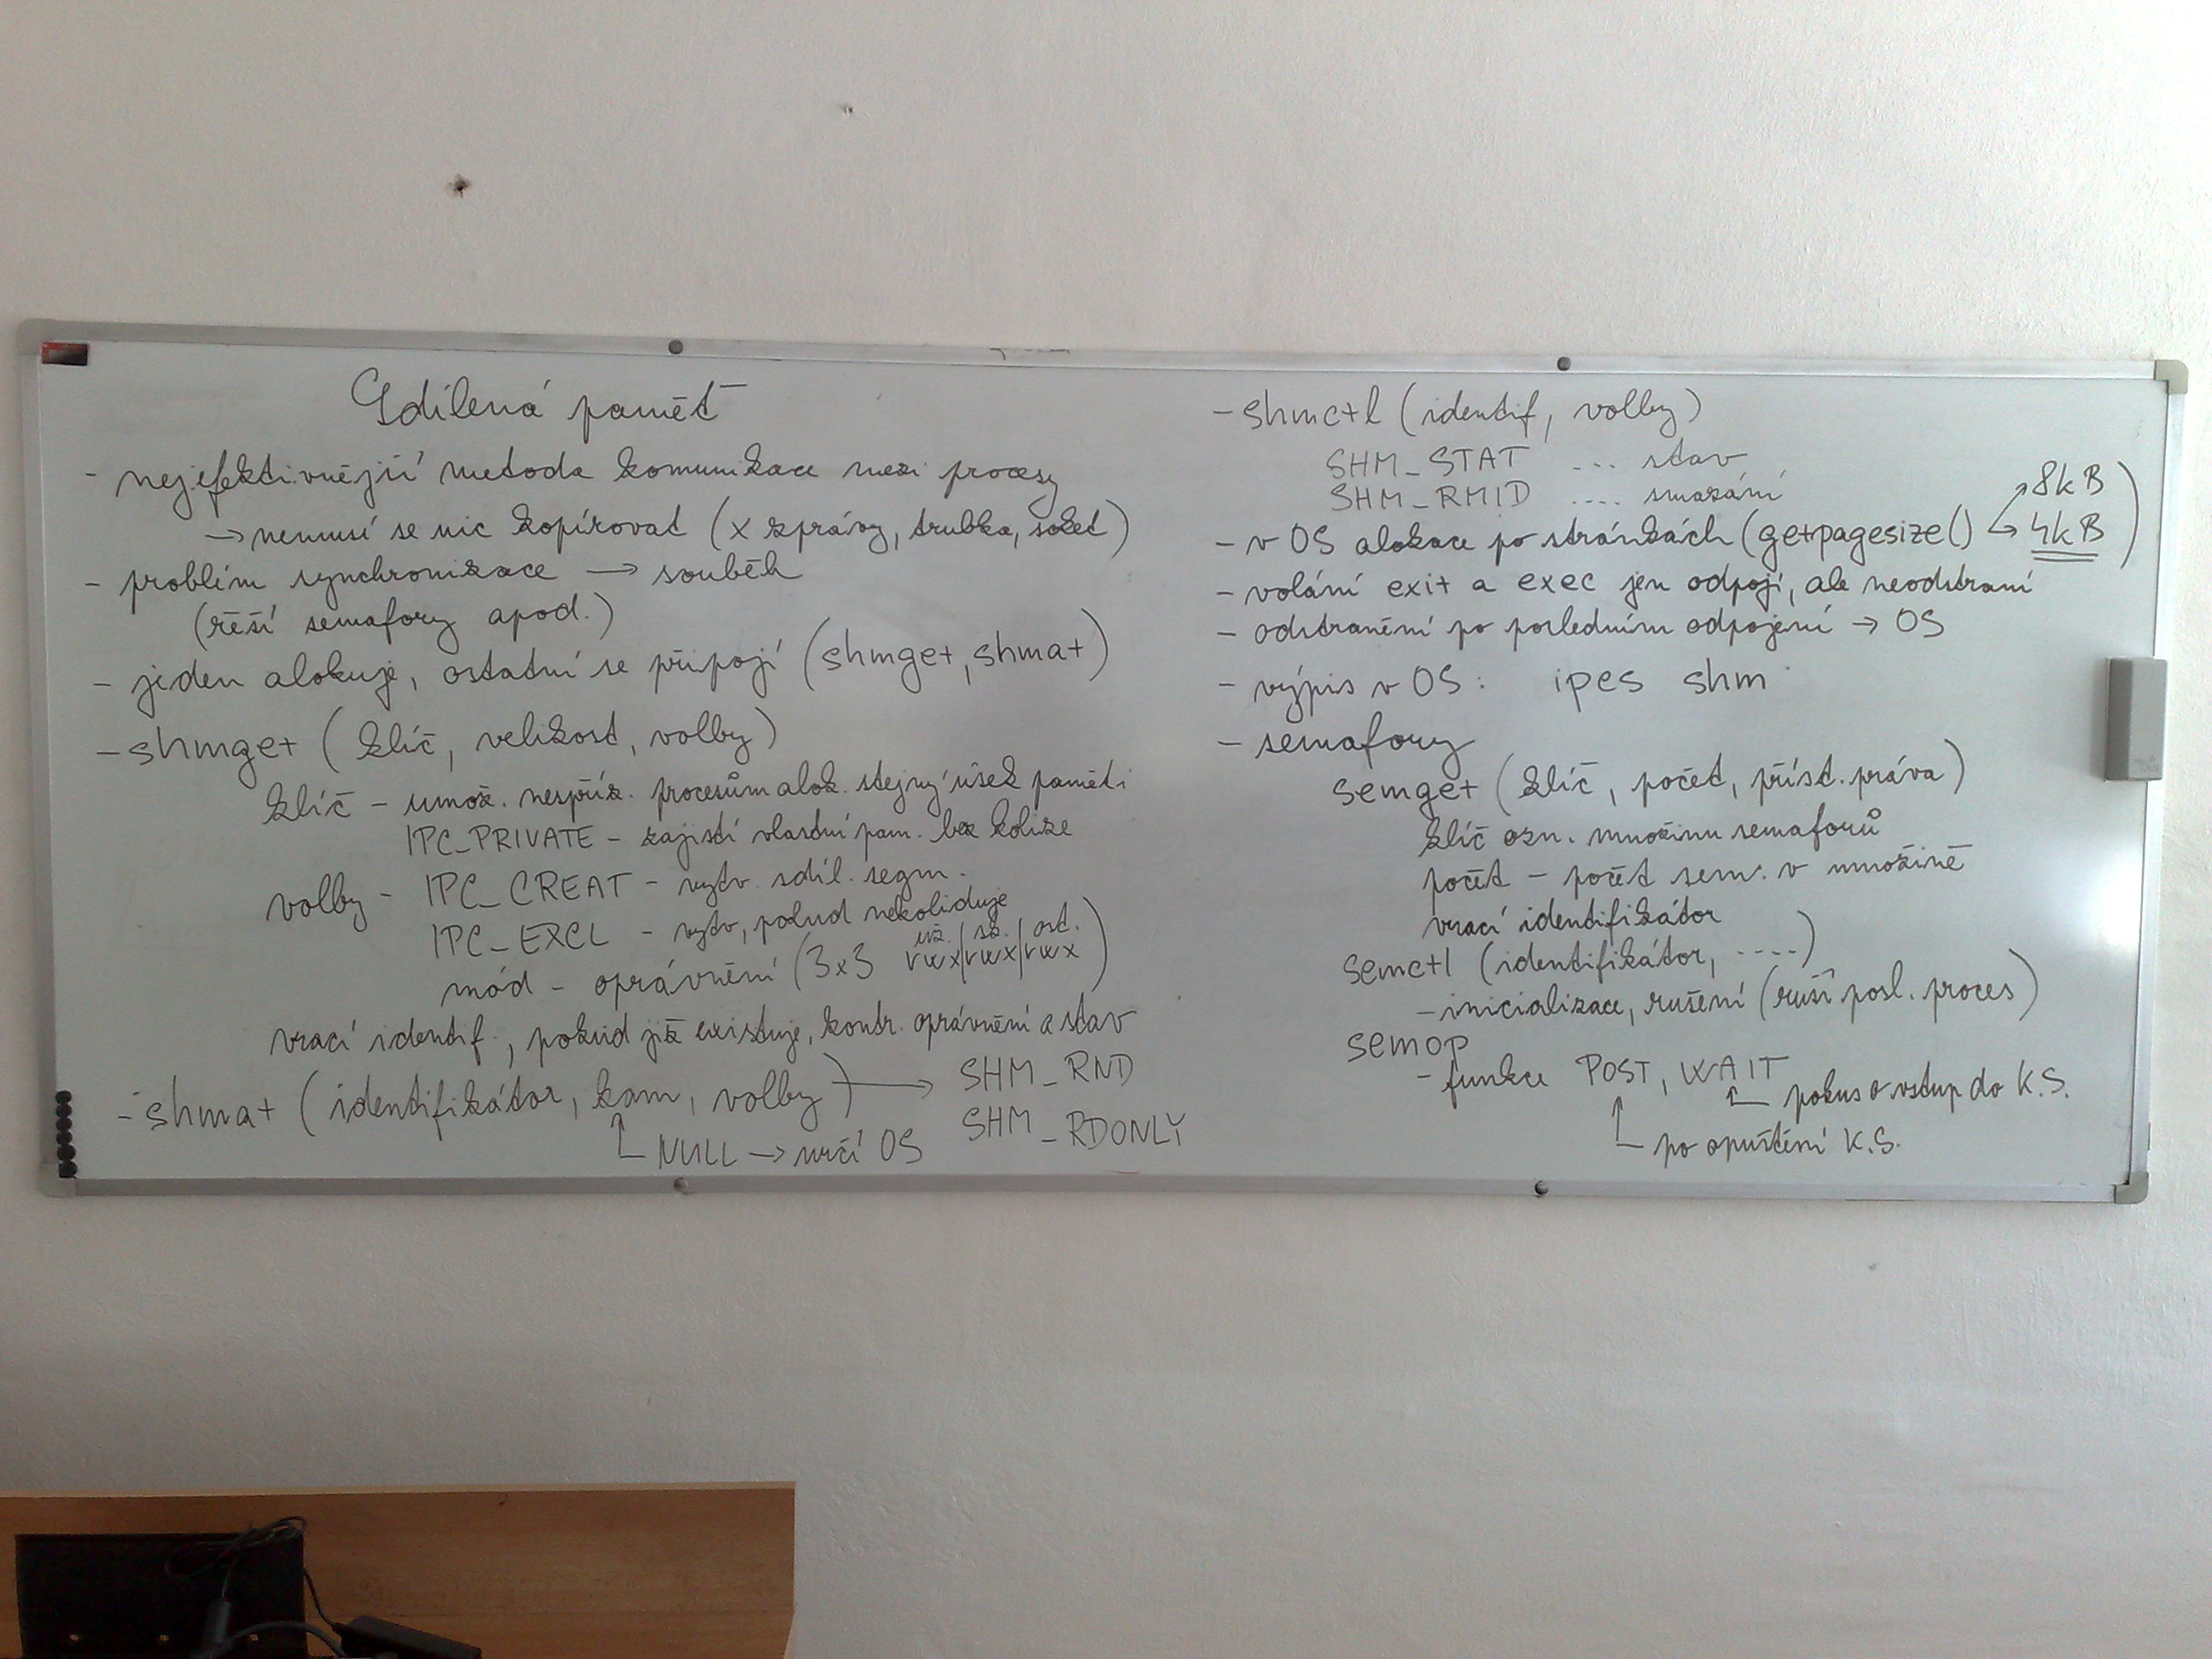 Sdílená paměť
- nejefektivnější metoda komunikace mezi procesy
→ nemusí se nic kopírovat (x zprávy, trubka, soket)
- problém synchronizace → souběh
(řeší semafory apod.)
- jeden alokuje, ostatní se připojí (shmget, shmat)
- shmget (klíč, velikost, volby)
klíč - umož. nespříz. procesům alok. stejný úsek paměti
IPC_PRIVATE - zajistí vlastní pam. bez kolize
volby - IPC_CREAT - vytv. sdíl. segm.
IPC_EXCL - vytv, pokud nekoliduje
už. | sk. | ost.
mód - oprávnění (3x3 rwx|rwx|rwx)
vrací identif., pokud již existuje, kontr. oprávnění a stav
- shmat (identifikátor, kam, volby) → SHM_RND
SHM_RDONLY
NULL → určí OS
- shmctl (identif, volby)
SHM_STAT ... stav
SHM_RMID .... smazání
- v OS alokace po stránkách (getpagesize() → 8kB
4kB)
- volání exit a exec jen odpojí, ale neodstraní
- odstranění po posledním odpojení → OS
- výpis v OS: ipcs shm
- semafory
semget (klíč, počet, příst. práva)
klíč ozn. množinu semaforů
počet - počet sem. v množině
vrací identifikátor
semctl (identifikátor, ....)
- inicializace, rušení (ruší posl. proces)
semop
- funkce POST, WAIT
pokus o vstup do K.S.
po opuštění K.S.